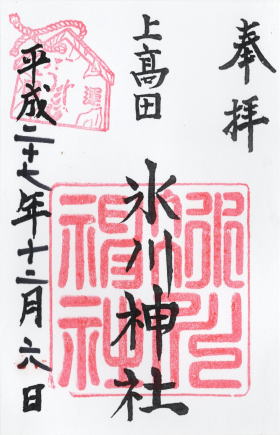 奉拝
上高田
氷川神社
平成二十七年十二月六日
氷川神社